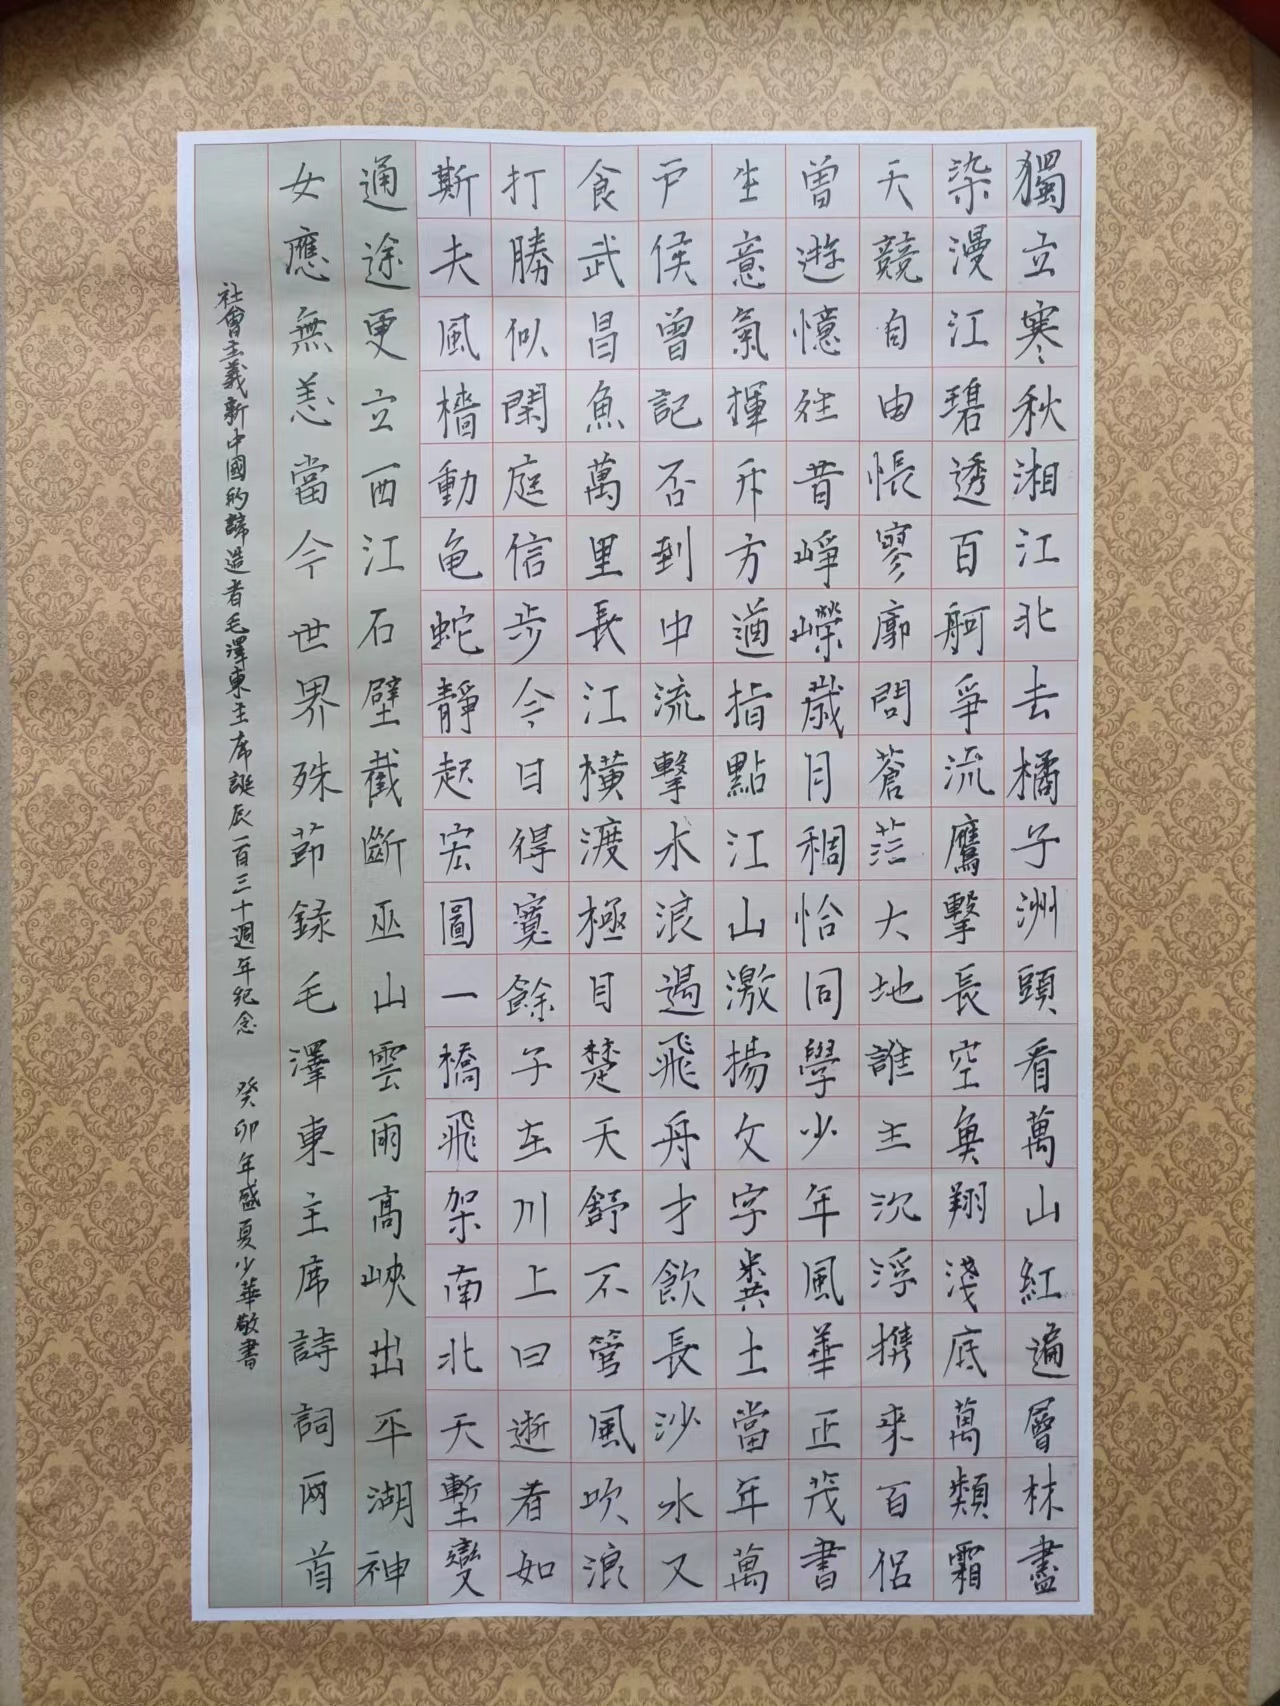 獨立寒秋湘江北去橘子洲頭看萬山紅遍層林盡
染漫江碧透百舸爭流鷹擊長空魚翔淺底萬類霜
天競自由悵寥廓問蒼茫大地誰主沉浮攜來百侶
曾遊憶往昔崢嶸歲月稠恰同學少年風華正茂書
生意氣揮斥方遒指點江山激揚文字糞土當年萬
戶侯曾記否到中流擊水浪遏飛舟才飲長沙水又
食武昌魚萬里長江橫渡極目楚天舒不管風吹浪
打勝似閑庭信步今日得寬餘子在川上曰逝者如
斯夫風檣動龟蛇靜起宏圖一橋飛架南北天塹變
通途更立西江石壁截斷巫山雲雨高峽出平湖神
女應無恙當今世界殊節錄毛澤東主席詩詞兩首
社會主義新中國的締造者毛澤東主席誕辰一百三十週年紀念 癸卯年盛夏少華敬書